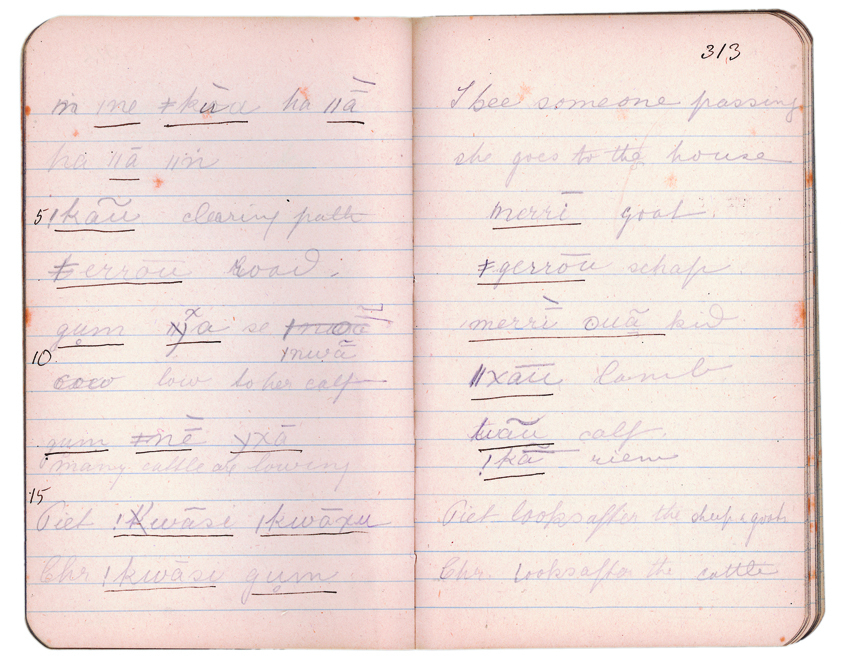 n ǀne ǂkūu ha ǁā
ha ǁā ǁin
5 ǀkãū clearing path
ǂerrōu road.
gum ꭓa se
ǀnwã
10
cow low to her calf
gum ǂnē yxā
many cattle are lowing
15
Piet !Kwāsi ǀkwāxu
Chr ǀkwāsi gum
313
I see someone passing
she goes to the house
merrī goat.
ǂgerrōu schap.
merrì ouã kid
ǁxãū lamb
tuãu calf.
!kã riem
Piet looks after the sheep & goats
Chr. looks after the cattle